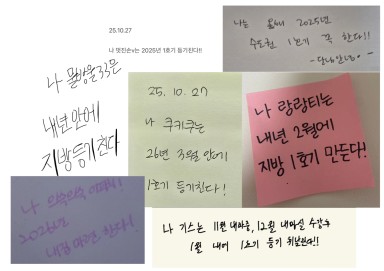 25.10.27
나 멋진손v는 2025년 1호기 등기친다!!
나는 올해 2025년
수도권 1호기 꼭 한다!!
나 물방울33은
내년 안에
지방등기친다
25. 10. 27
나 쿠키쿠는
26년 3월 안에
1호기 등기친다!
나 랑랑티는
내년 2월에
지방 1호기 만든다!
나 으쓱으쓱
2026년
내집 마련 한다!
나 기스는 11월 내마중, 12월 내마실 수강후
1월 내에 1호기 등기 쳐본다!!